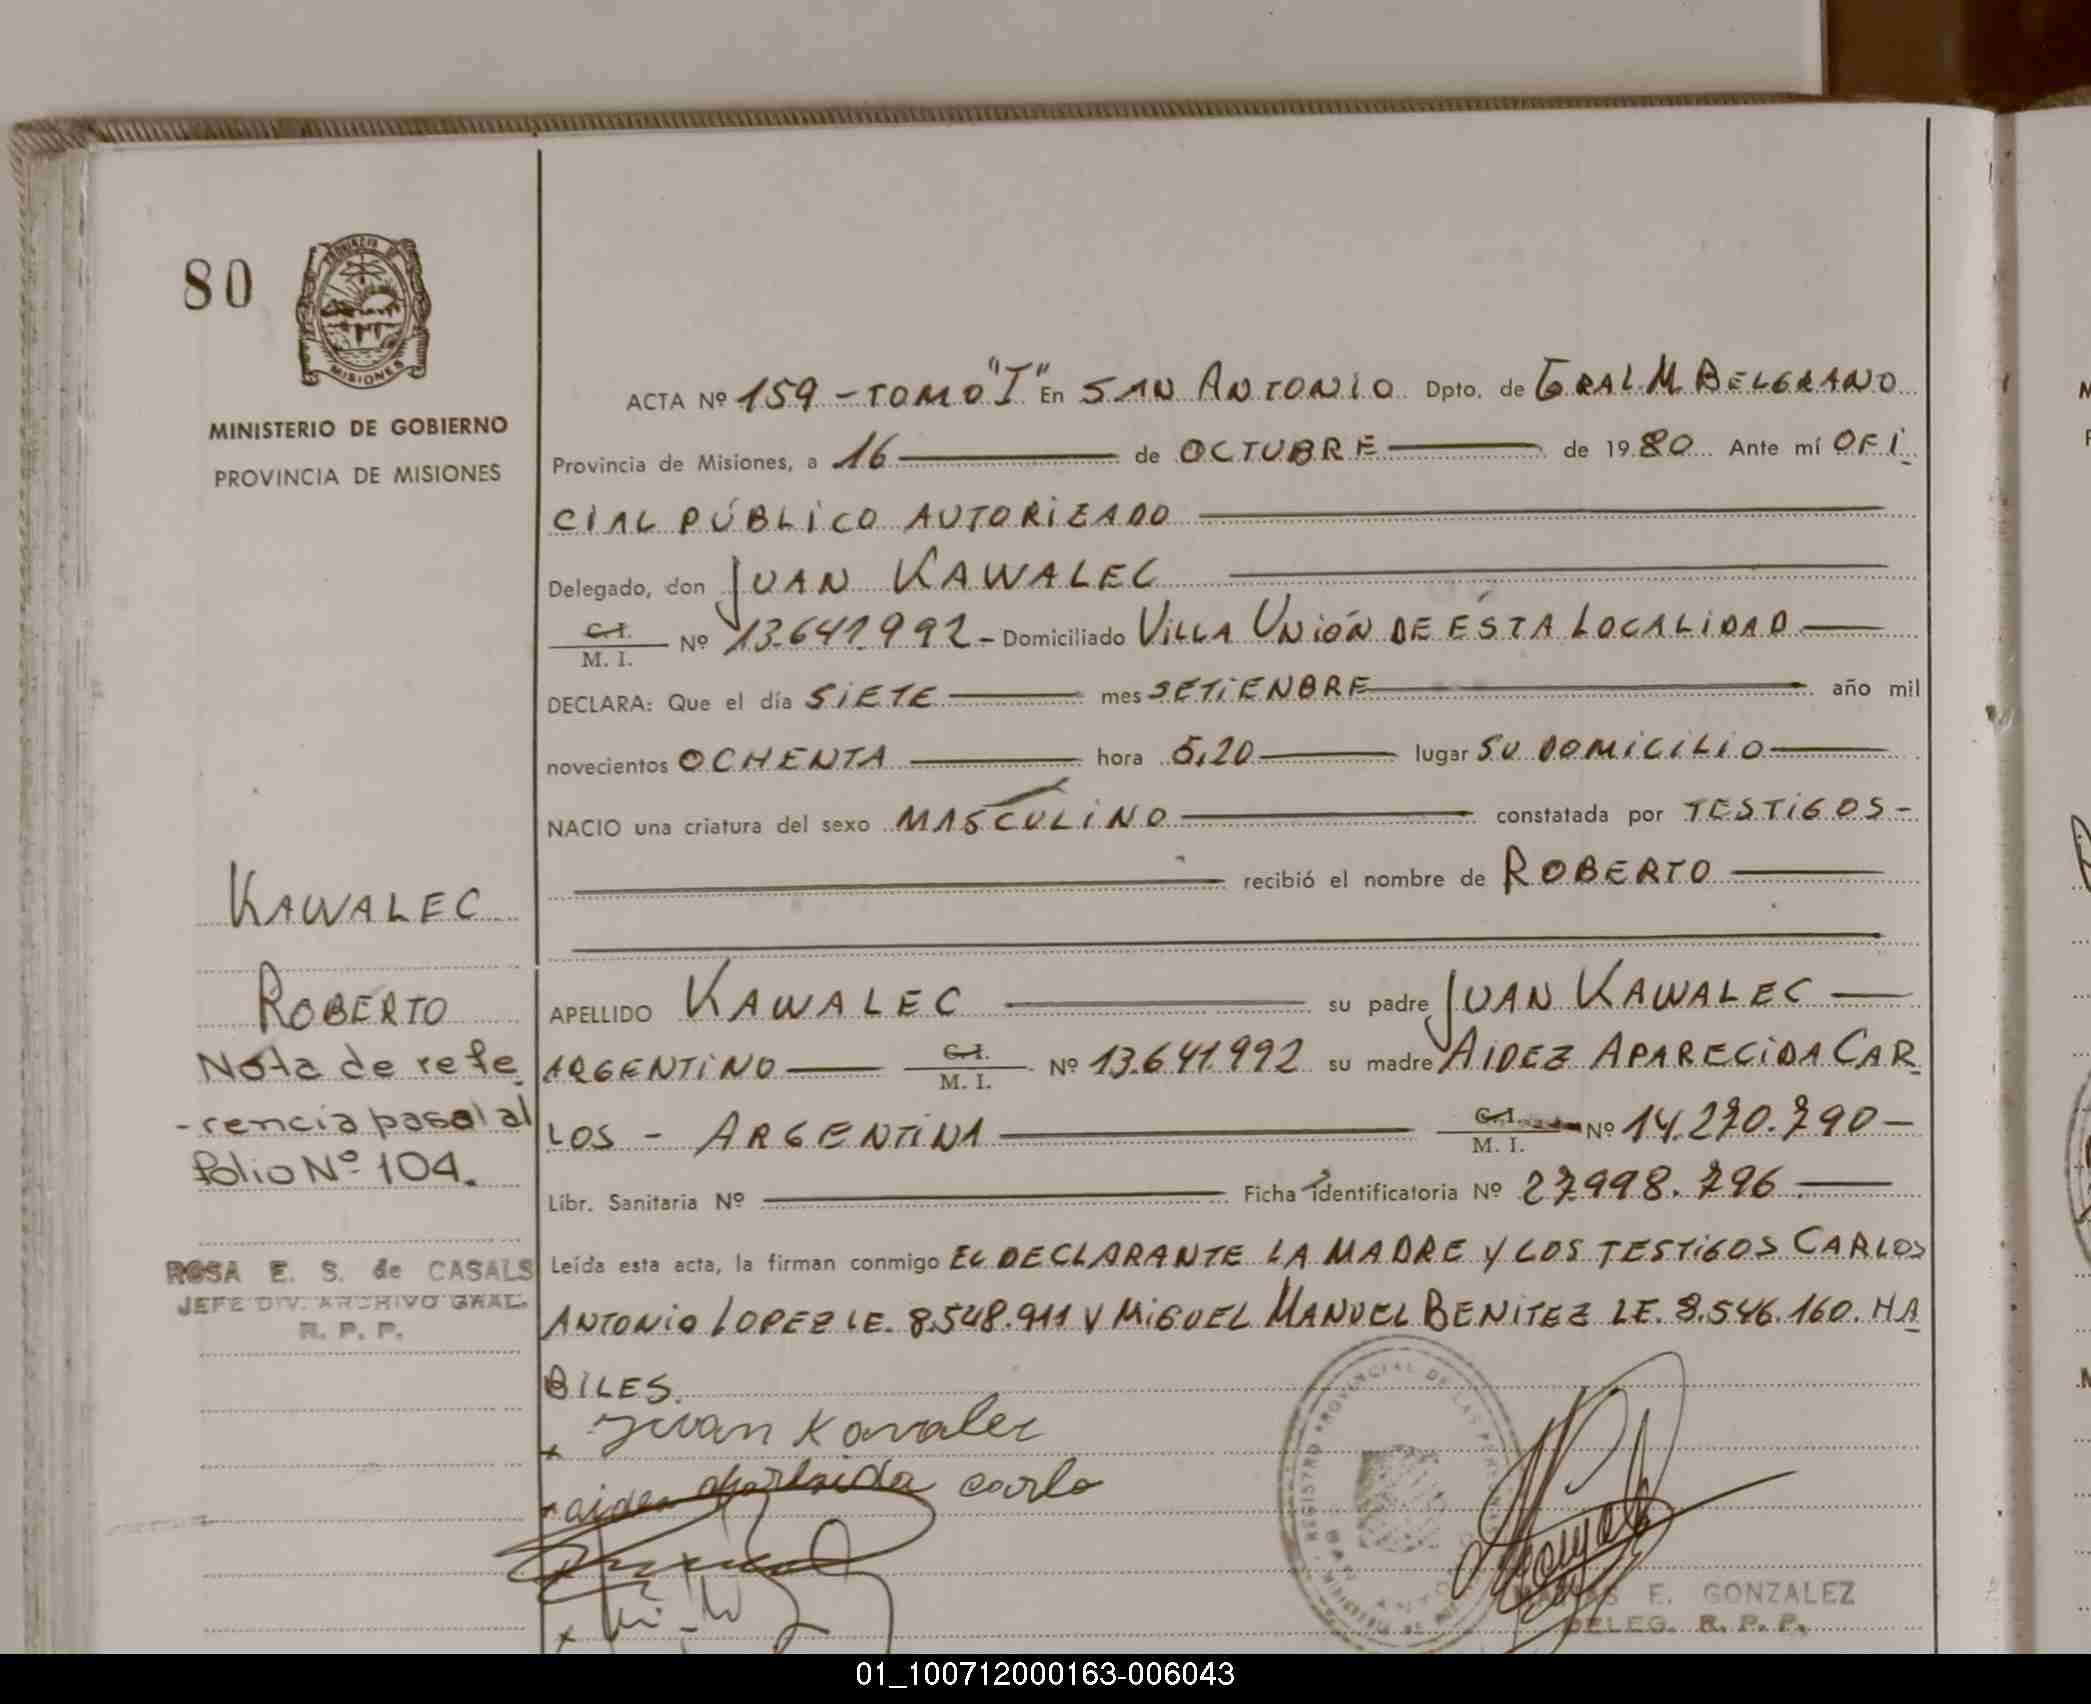 80
MISIONES
MINISTERIO DE GOBIERNO
PROVINCIA DE MISIONES
ACTA Nº 159 - TOMO "I" En SAN ANTONIO Dpto. de GRAL M. BELGRANO
Provincia de Misiones, a 16 de OCTUBRE de 1980 Ante mí OFI
CIAL PÚBLICO AUTORIZADO
Delegado, don JUAN KAWALEC
C.I. M. I. Nº 13.641.992 - Domiciliado VILLA UNIÓN DE ÉSTA LOCALIDAD
DECLARA: Que el día SIETE mes SETIENBRE año mil
novecientos OCHENTA hora 5,20 lugar SU DOMICILIO
NACIO una criatura del sexo MASCULINO constatada por TESTIGOS -
recibió el nombre de ROBERTO
KAWALEC
ROBERTO
Nota de refe
-rencia pasa al
folio Nº 104.
ROSA E. S. de CASALS
JEFE DIV. ARCHIVO GRAL.
R. P. P.
APELLIDO KAWALEC su padre JUAN KAWALEC
ARGENTINO C.I. M. I. Nº 13.641.992 su madre AIDEZ APARECIDA CAR
LOS - ARGENTINA C.I. M. I. Nº 14.270.790 -
Libr. Sanitaria Nº Ficha identificatoria Nº 27998.796
Leída esta acta, la firman conmigo EL DECLARANTE LA MADRE Y LOS TESTIGOS CARLOS
ANTONIO LOPEZ LE. 8.548.911 Y MIGUEL MANUEL BENITEZ LE. 8.546.160. HA
BILES.
x Juan Kavalec
x aidez carlo
REGISTRO PROVINCIAL DE LAS PERSONAS
E. GONZALEZ
DELEG. R. P. P.
01_100712000163-006043